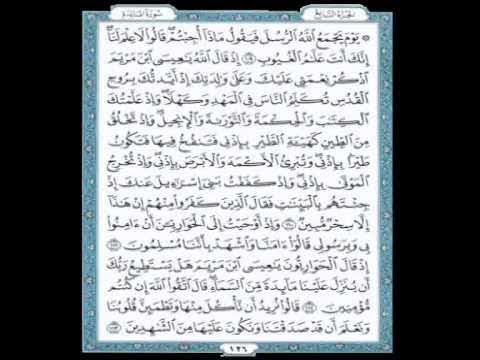 سورة المائدة
الجزء السابع
يَوْمَ يَجْمَعُ ٱللَّهُ ٱلرُّسُلَ فَيَقُولُ مَاذَآ أُجِبْتُمْ ۖ قَالُوا۟ لَا عِلْمَ لَنَآ ۖ
إِنَّكَ أَنتَ عَلَّـٰمُ ٱلْغُيُوبِ ١٠٩ إِذْ قَالَ ٱللَّهُ يَـٰعِيسَى ٱبْنَ مَرْيَمَ
ٱذْكُرْ نِعْمَتِى عَلَيْكَ وَعَلَىٰ وَٰلِدَتِكَ إِذْ أَيَّدتُّكَ بِرُوحِ
ٱلْقُدُسِ تُكَلِّمُ ٱلنَّاسَ فِى ٱلْمَهْدِ وَكَهْلًا ۖ وَإِذْ عَلَّمْتُكَ
ٱلْكِتَـٰبَ وَٱلْحِكْمَةَ وَٱلتَّوْرَىٰةَ وَٱلْإِنجِيلَ ۖ وَإِذْ تَخْلُقُ
مِنَ ٱلطِّينِ كَهَيْـَٔةِ ٱلطَّيْرِ بِإِذْنِى فَتَنفُخُ فِيهَا فَتَكُونُ
طَيْرًۢا بِإِذْنِى ۖ وَتُبْرِئُ ٱلْأَكْمَهَ وَٱلْأَبْرَصَ بِإِذْنِى ۖ وَإِذْ تُخْرِجُ
ٱلْمَوْتَىٰ بِإِذْنِى ۖ وَإِذْ كَفَفْتُ بَنِىٓ إِسْرَٰٓءِيلَ عَنكَ إِذْ
جِئْتَهُم بِٱلْبَيِّنَـٰتِ فَقَالَ ٱلَّذِينَ كَفَرُوا۟ مِنْهُمْ إِنْ هَـٰذَآ
إِلَّا سِحْرٌ مُّبِينٌ ١١٠ وَإِذْ أَوْحَيْتُ إِلَى ٱلْحَوَارِيِّـۧنَ أَنْ ءَامِنُوا۟
بِى وَبِرَسُولِى قَالُوٓا۟ ءَامَنَّا وَٱشْهَدْ بِأَنَّنَا مُسْلِمُونَ ١١١
إِذْ قَالَ ٱلْحَوَارِيُّونَ يَـٰعِيسَى ٱبْنَ مَرْيَمَ هَلْ يَسْتَطِيعُ رَبُّكَ
أَن يُنَزِّلَ عَلَيْنَا مَآئِدَةً مِّنَ ٱلسَّمَآءِ ۖ قَالَ ٱتَّقُوا۟ ٱللَّهَ إِن كُنتُم
مُّؤْمِنِينَ ١١٢ قَالُوا۟ نُرِيدُ أَن نَّأْكُلَ مِنْهَا وَتَطْمَئِنَّ قُلُوبُنَا
وَنَعْلَمَ أَن قَدْ صَدَقْتَنَا وَنَكُونَ عَلَيْهَا مِنَ ٱلشَّـٰهِدِينَ ١١٣
١٢٦